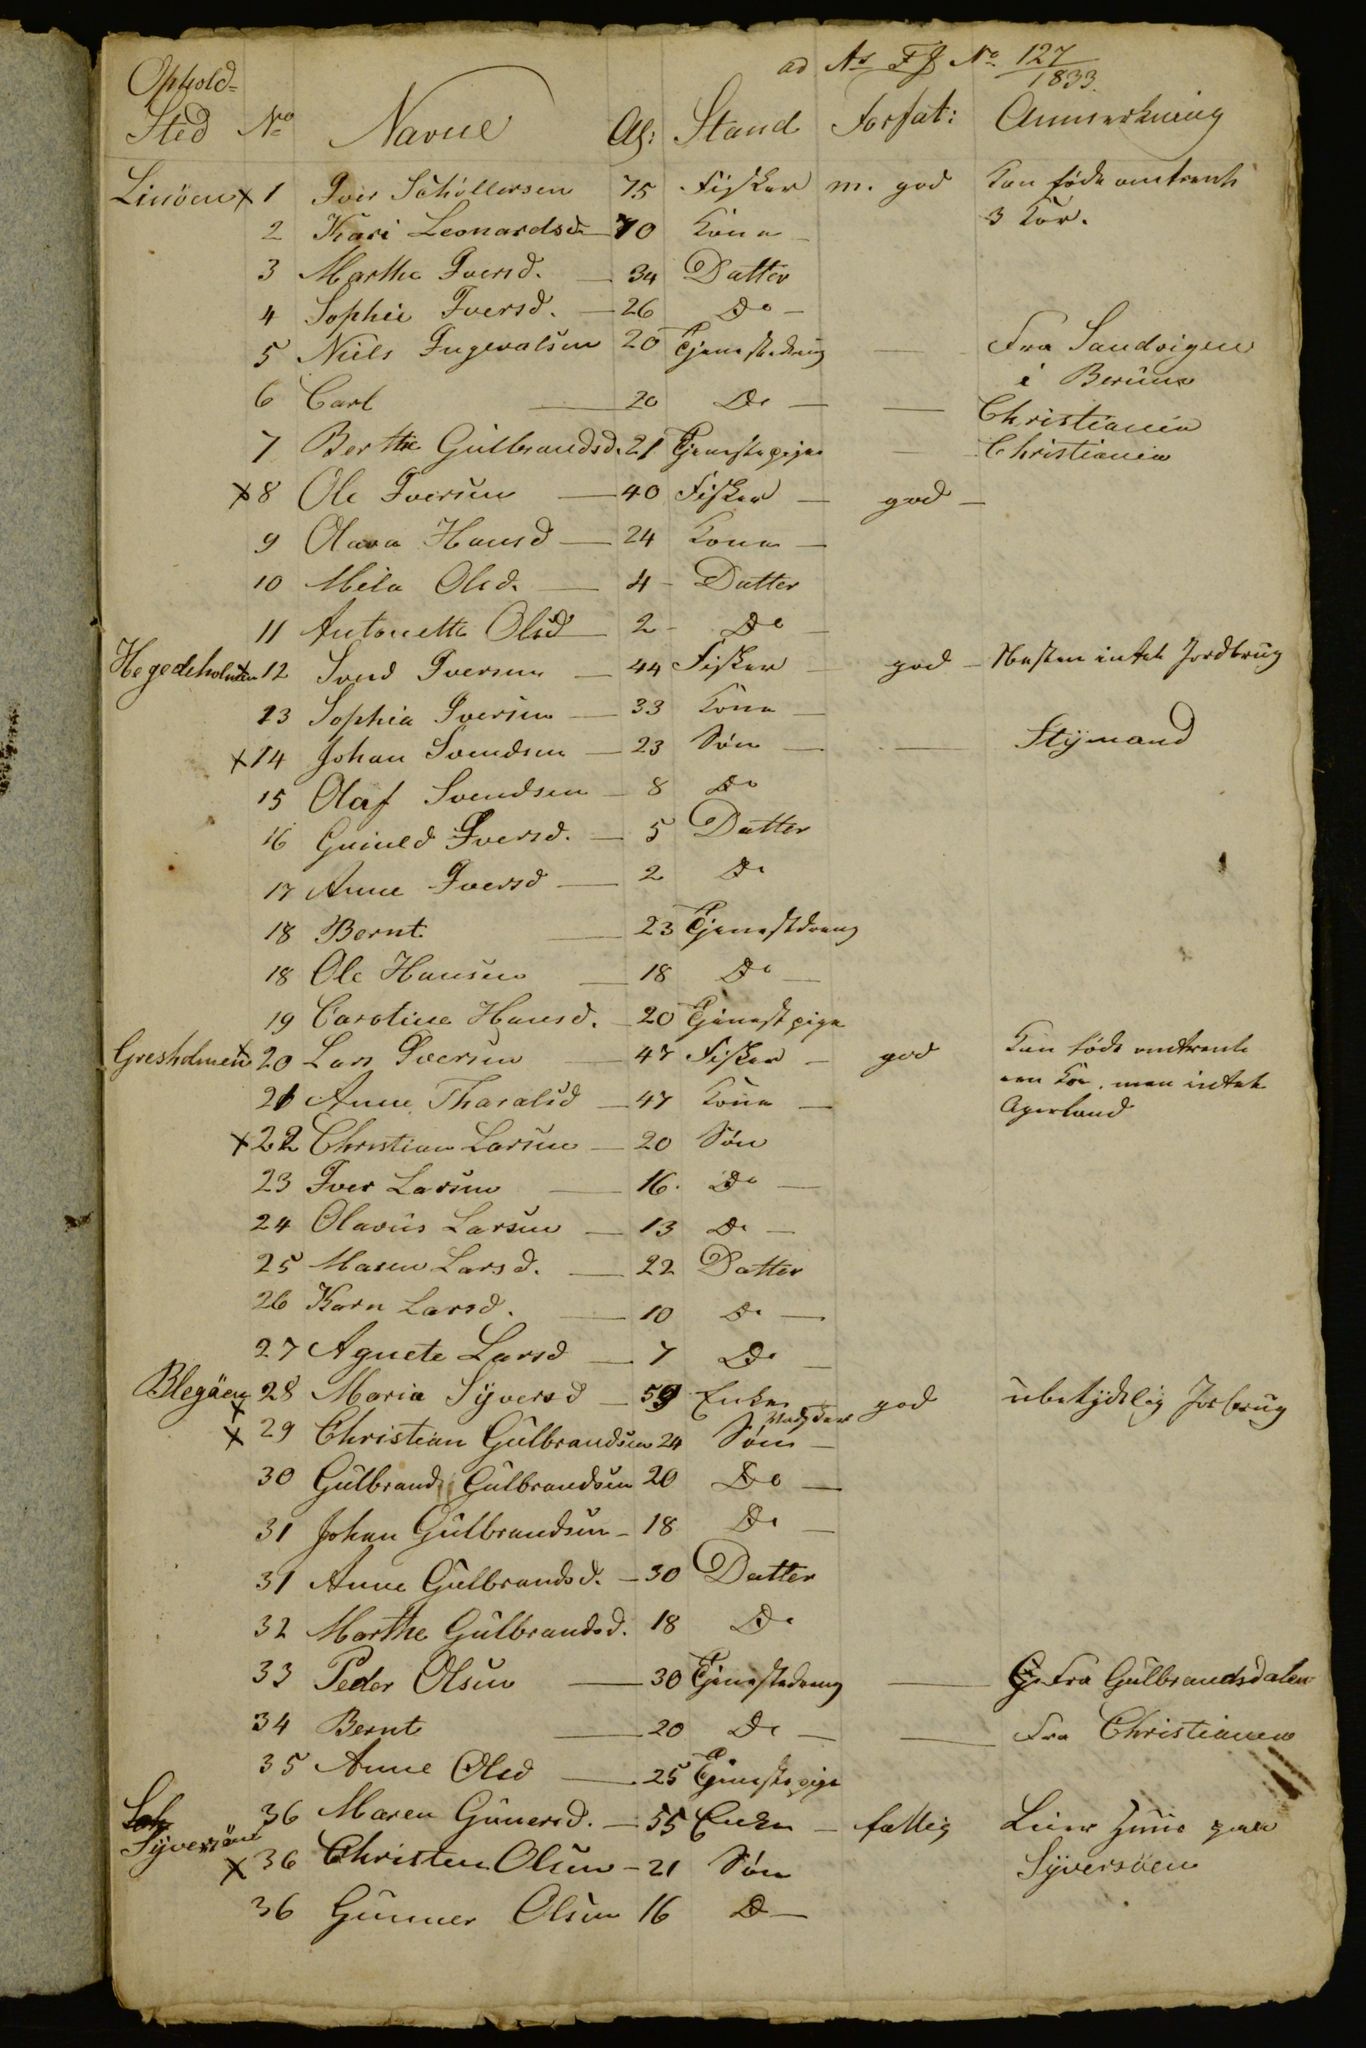 ad As FJ No 127/1833
Ophold-
Sted No Navne Al: Stand Forfat: Anmerkning
Linöen x 1 Iver Schöllersen 75 Fisker m. god Kan föde omtrent
2 Kari Leonardsd 70 Kone 3 Kör.
3 Marthe Iversd. 34 Datter
4 Sophie Iversd. 26 Do
5 Niels Ingevalsen 20 Tjenestedreng Fra Sandvigen
i Berum
6 Carl 20 Do Christiania
7 Berthe Gulbrandsd. 21 Tjenestepige Christiania
x 8 Ole Iversen 40 Fisker god
9 Olava Hansd 24 Kone
10 Mila Olsd. 4 Datter
11 Antonette Olsd 2 Do
Hegdeholmen x 12 Svend Iversen 44 Fisker god Næsten intet Jordbrug
13 Sophia Iversen 33 Kone
x 14 Johan Svendsen 23 Sön Stÿmand
15 Olaf Svendsen 8 Do
16 Gunild Iversd. 5 Datter
17 Anne Iversd 2 Do
18 Bernt 23 Tjenestdreng
18 Ole Hansen 18 Do
19 Caroline Hansd. 20 Tjenestpige
Gresholmen x 20 Lars Iversen 47 Fisker god Kan föde omtrent
een Koe, men intet
21 Anne Tharalsd 47 Kone Agerland
x 22 Christian Larsen 20 Sön
23 Iver Larsen 16. Do
24 Olavus Larsen 13 Do
25 Maren Larsd. 22 Datter
26 Karn Larsd. 10 Do
27 Agnete Larsd 7 Do
Blegöen x 28 Maria Sÿversd 59 Enke god ubetydelig Jorbrug
x 29 Christian Gulbrandsen 24 Sön
30 Gulbrand Gulbrandsen 20 Do
31 Johan Gulbrandsen 18 Do
31 Anne Gulbrandsd. 30 Datter
32 Marthe Gulbrandsd. 18 Do
33 Peder Olsen 30 Tjenestedreng Fra Gulbrandsdalen
34 Bernt 20 Do Fra Christiania
35 Anne Olsd 25 Tjenestepige
Sÿversöen 36 Maren Gunersd. 55 Enke fattig Leier Huus paa
x 36 Christen Olsen 21 Sön Sÿversöen
36 Gunner Olsen 16 D